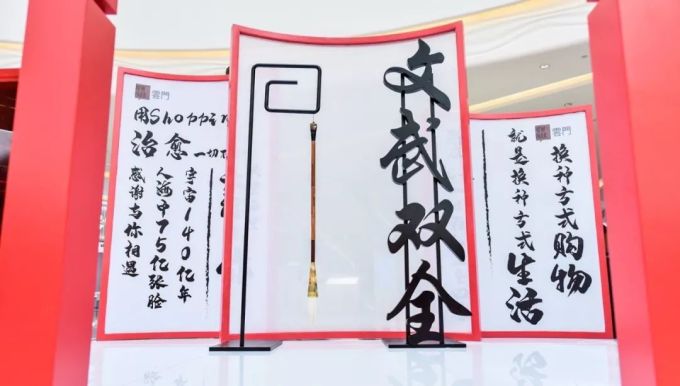 雲門
用Shopping
治愈一切不
宇宙140亿年
人海中75亿张脸
感谢与你相遇
文武双全
雲門
换种方式购物
就是换种方式生活